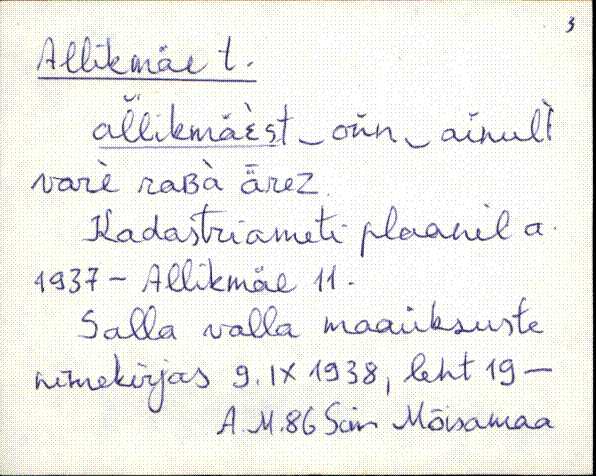 3
Allikmäe t.
al̆likmäèst‿oǔn‿aǐnult̀
varè raʙà ǟrez.
Kadastriameti plaanil a.
1937 – Allikmäe 11.
Salla valla maaüksuste
nimekirjas 9. IX 1938, leht 19 –
A.M. 86 Sim Mõisamaa